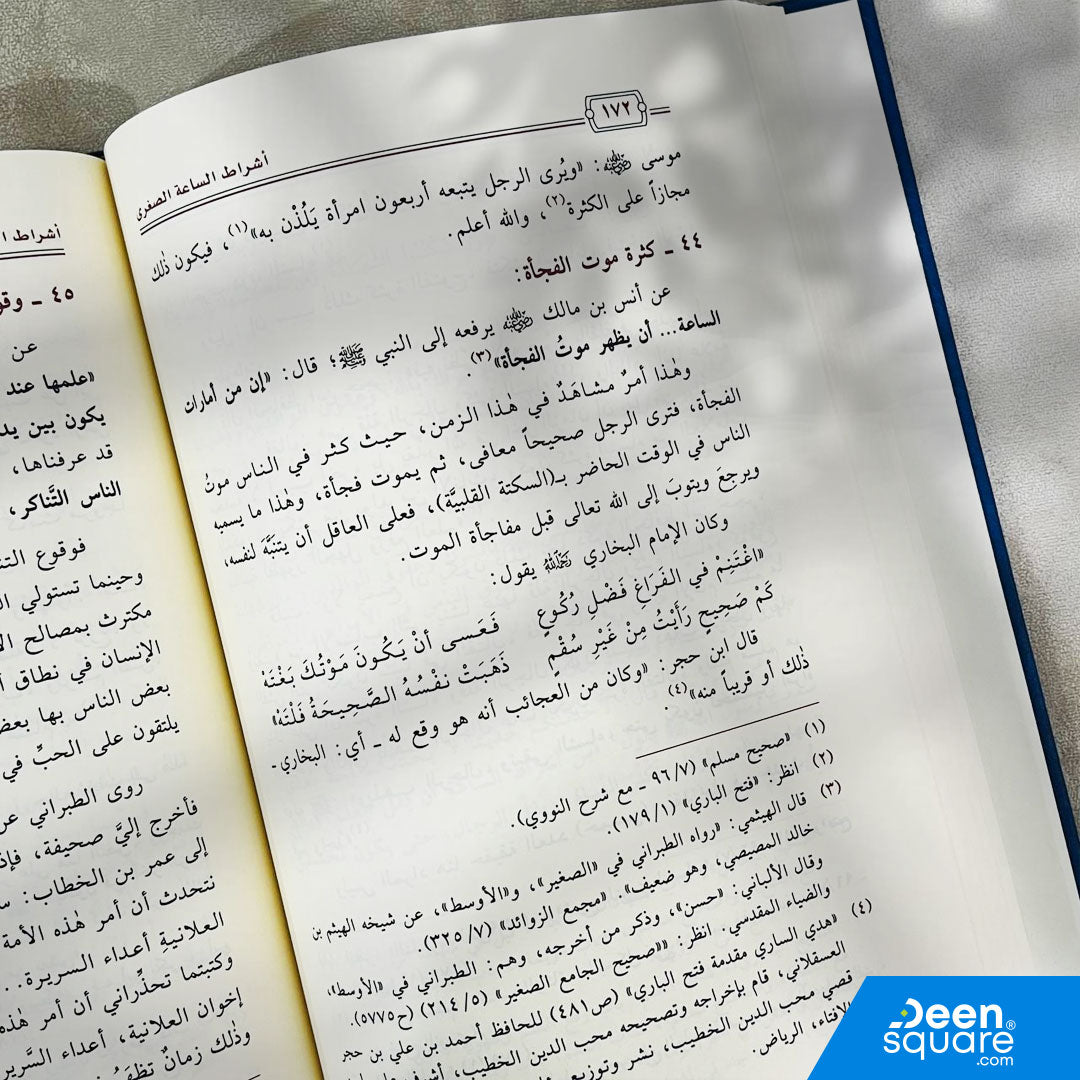 ١٧٢
أشراط الساعة الصغرى
موسى رضي الله عنه: «ويُرى الرجل يتبعه أربعون امرأة يَلُذْن به»(١)، فيكون ذٰلك
مجازاً على الكثرة(٢)، والله أعلم.
٤٤ ـ كثرة موت الفجأة:
عن أنس بن مالك رضي الله عنه يرفعه إلى النبي ﷺ؛ قال: «إن من أمارات
الساعة... أن يظهر موتُ الفجأة»(٣).
وهٰذا أمرٌ مشاهَدٌ في هٰذا الزمن، حيث كثر في الناس موتُ
الفجأة، فترى الرجل صحيحاً معافى، ثم يموت فجأة، وهٰذا ما يسميه
الناس في الوقت الحاضر بـ(السكتة القلبيَّة)، فعلى العاقل أن يتنبَّهَ لنفسه،
ويرجعَ ويتوبَ إلى الله تعالى قبل مفاجأة الموت.
وكان الإمام البخاري رحمه الله يقول:
«اغْتَنِمْ في الفَرَاغِ فَضْلَ رُكُوعٍ فَعَسى أنْ يَكُونَ مَوْتُكَ بَغْتَهْ
كَمْ صَحِيحٍ رَأَيْتُ مِنْ غَيْرِ سُقْمٍ ذَهَبَتْ نفْسُهُ الصَّحِيحَةُ فَلْتَهْ»
قال ابن حجر: «وكان من العجائب أنه هو وقع له ـ أي: البخاري ـ
ذٰلك أو قريباً منه»(٤).
(١) «صحيح مسلم» (٧/ ٩٦ ـ مع شرح النووي).
(٢) انظر: «فتح الباري» (١/ ١٧٩).
(٣) قال الهيثمي: «رواه الطبراني في «الصغير»، و«الأوسط»، عن شيخه الهيثم بن
خالد المصيصي، وهو ضعيف». «مجمع الزوائد» (٧/ ٣٢٥).
وقال الألباني: «حسن»، وذكر من أخرجه، وهم: الطبراني في «الأوسط»،
والضياء المقدسي. انظر: «صحيح الجامع الصغير» (٥/ ٢١٤) (ح٥٧٧٥).
(٤) «هدي الساري مقدمة فتح الباري» (ص٤٨١) للحافظ أحمد بن علي بن حجر
العسقلاني، قام بإخراجه وتصحيحه محب الدين الخطيب، أشرف
قصي محب الدين الخطيب، نشر وتوزيع
الإفتاء، الرياض.
أشراط
٤٥ ـ
عن
«علمها عند
يكون بين
قد عرفناها،
الناس التَّناكر،
فوقوع
وحينما تستولي
مكترث بمصالح
الإنسان في نطاق
بعض الناس بها
يلتقون على الحبِّ في
روى الطبراني
فأخرج إليَّ صحيفة،
إلى عمر بن الخطاب:
نتحدث أن أمر هٰذه الأمة
العلانيةِ أعداء السريرة...
وكتبتما تحذِّراني أن أمر هٰذه
إخوان العلانية، أعداء
وذٰلك زمانٌ
Deen
square®
.com